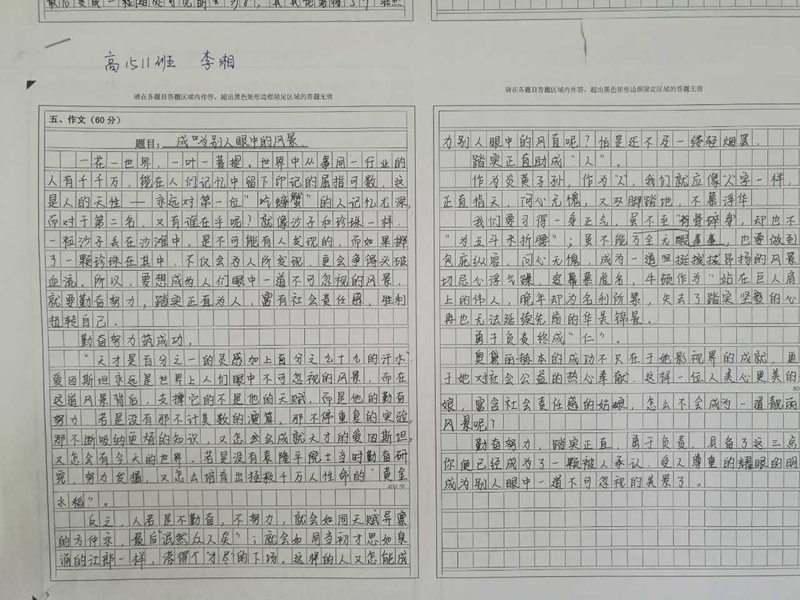 高1511班 李湘
请在各题目答题区域内作答，超出黑色矩形边框限定区域的答题无效
五、作文（60分）
题目：成为别人眼中的风景
一花一世界，一叶一菩提。世界中从事同一行业的
人有千千万，能在人们记忆中留下印记的屈指可数，这
是人的天性——永远对第一位"吃螃蟹"的人记忆尤深，
而对于第二名，又有谁在乎呢？就像沙子和珍珠一样，
一粒沙子丢在沙滩中，是不可能有人发现的，而如果掷
了一颗珍珠在其中，不仅会为人所发现，更会争得头破
血流。所以，要想成为人们眼中一道不可忽视的风景，
就要勤奋努力，踏实正直为人，富有社会责任感，胜利
扭转自己。
勤奋努力筑成功。
"天才是百分之一的灵感加上百分之九十九的汗水"
爱因斯坦永远是世界上人们眼中不可忽视的风景，而在
这道风景背后，支撑它的不是他的天赋，而是他的勤奋
努力。若是没有那不计其数的演算，那不停重复的实验，
那不断吸纳更播的知识，又怎然会成就天才的爱因斯坦，
又怎会有今天的世界。若是没有袁隆平院士当时勤奋研
究，努力发掘，又怎么培育出拯救千万人性命的"黄金
水稻"。
反之，人若是不勤奋，不努力，就会如同天赋异禀
的方仲永，最后"泯然众人矣"；就会如同当初才思如泉
涌的江郎一样，落得个"才尽"的下场。这样的人又怎能成
请在各题目答题区域内作答，超出黑色矩形边框限定区域的答题无效
为别人眼中的风直呢？怕是还不及一缕轻烟罢。
踏实正直助成"人"。
作为炎黄子孙，作为"人"，我们就应像"人"字一样，
正直指天，问心无愧，又双脚踏地，不慕浮华。
我们要习得一身正气，虽不至粉骨碎身，却也不
"为五斗米折腰"；虽不能万全无暇，也要做到
包庇纵容，问心无愧，成为一道坦挺拔的风景
切忌心浮气躁，爱慕虚名，牛顿作为"站在巨人肩
上的伟人，晚年却为名利所累，失去了踏实坚毅的心
再也无法延续先前的华美锦景。
勇于负责终成"仁"。
奥黛丽赫本的成功不只在于她影视界的成就，更
于她对社会公益的热心奉献，这样一位人美心更美的
娘，富含社会责任感的姑娘，怎么不会成为一道靓丽
风景呢？
勤奋努力，踏实正直，勇于负责，具备了这三点
你便已经成为了一颗被人承认，受人尊重的耀眼的明
成为别人眼中一道不可忽视的美景了。